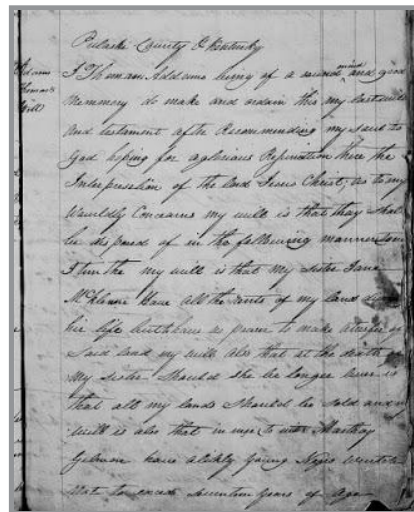 Pulaski County & Kentucky
Adams
Thomas
Will
I Thomas Addams being of a sound mind and good
Memmory do make and ordain this my last will
and testament after Recommending my soul to
God hoping for a glorious Resurrection threw the
Interpresetion of the Lord Jesus Christ; as to my
Wourldly Concearns my will is that they shal
be disposed of in the following manner
Item the my will is that My Sister Jane
McKlewer have all the rents of my land
her life but have no power to make
Said land my will also that at the death of
My Sister Should she be longer liver is
that all my lands Should be sold and
will is also that Marthay
Gilmon have a likly young Negro
not to exceed Seventeen years of age